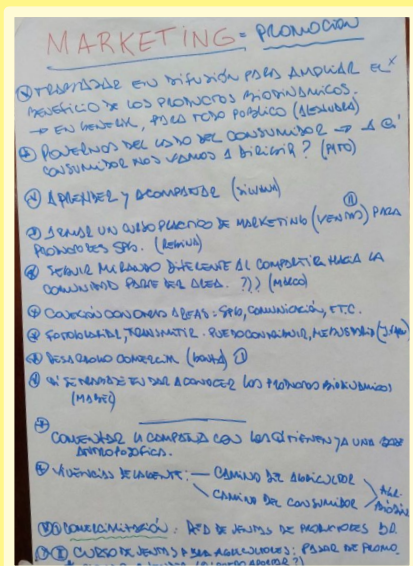 MARKETING = PROMOCION
TRABAJAR EN DIFUSIÓN PARA AMPLIAR EL
BENEFICIO DE LOS PRODUCTOS BIODINAMICOS.
→ EN GENERAL, PARA TODO PUBLICO
PONERNOS DEL LADO DEL CONSUMIDOR → A Q'
CONSUMIDOR NOS VAMOS A DIRIGIR? (PITO)
APRENDER Y ACOMPAÑAR (SILVANA)
ARMAR UN CURSO PRACTICO DE MARKETING (VENTAS) PARA
PRODUCTORES SPG. (REGINA)
SEGUIR MIRANDO DIFERENTE AL COMPARTIR HACIA LA
COMUNIDAD PARTE DEL AREA. ??? (MARCO)
CONEXIÓN CON OTRAS AREAS: SPG, COMUNICACIÓN, ETC.
FOTOGRAFIAR, TRANSMITIR. PUEDO CONTRIBUIR,
DESARROLLO COMERCIAL
Q' SE TRABAJE EN DAR A CONOCER LOS PRODUCTOS BIODINAMICOS
(MABEL)
COMENZAR LA CAMPAÑA CON LOS Q' TIENEN YA UNA BASE
ANTROPOSOFICA.
VIVENCIAS DE LA GENTE: — CAMINO DEL AGRICULTOR
CAMINO DEL CONSUMIDOR
COMERCIALIZACIÓN: RED DE VENTAS DE PRODUCTORES BD
CURSO DE VENTAS PARA AGRICULTORES: PASAR DE PROMO.